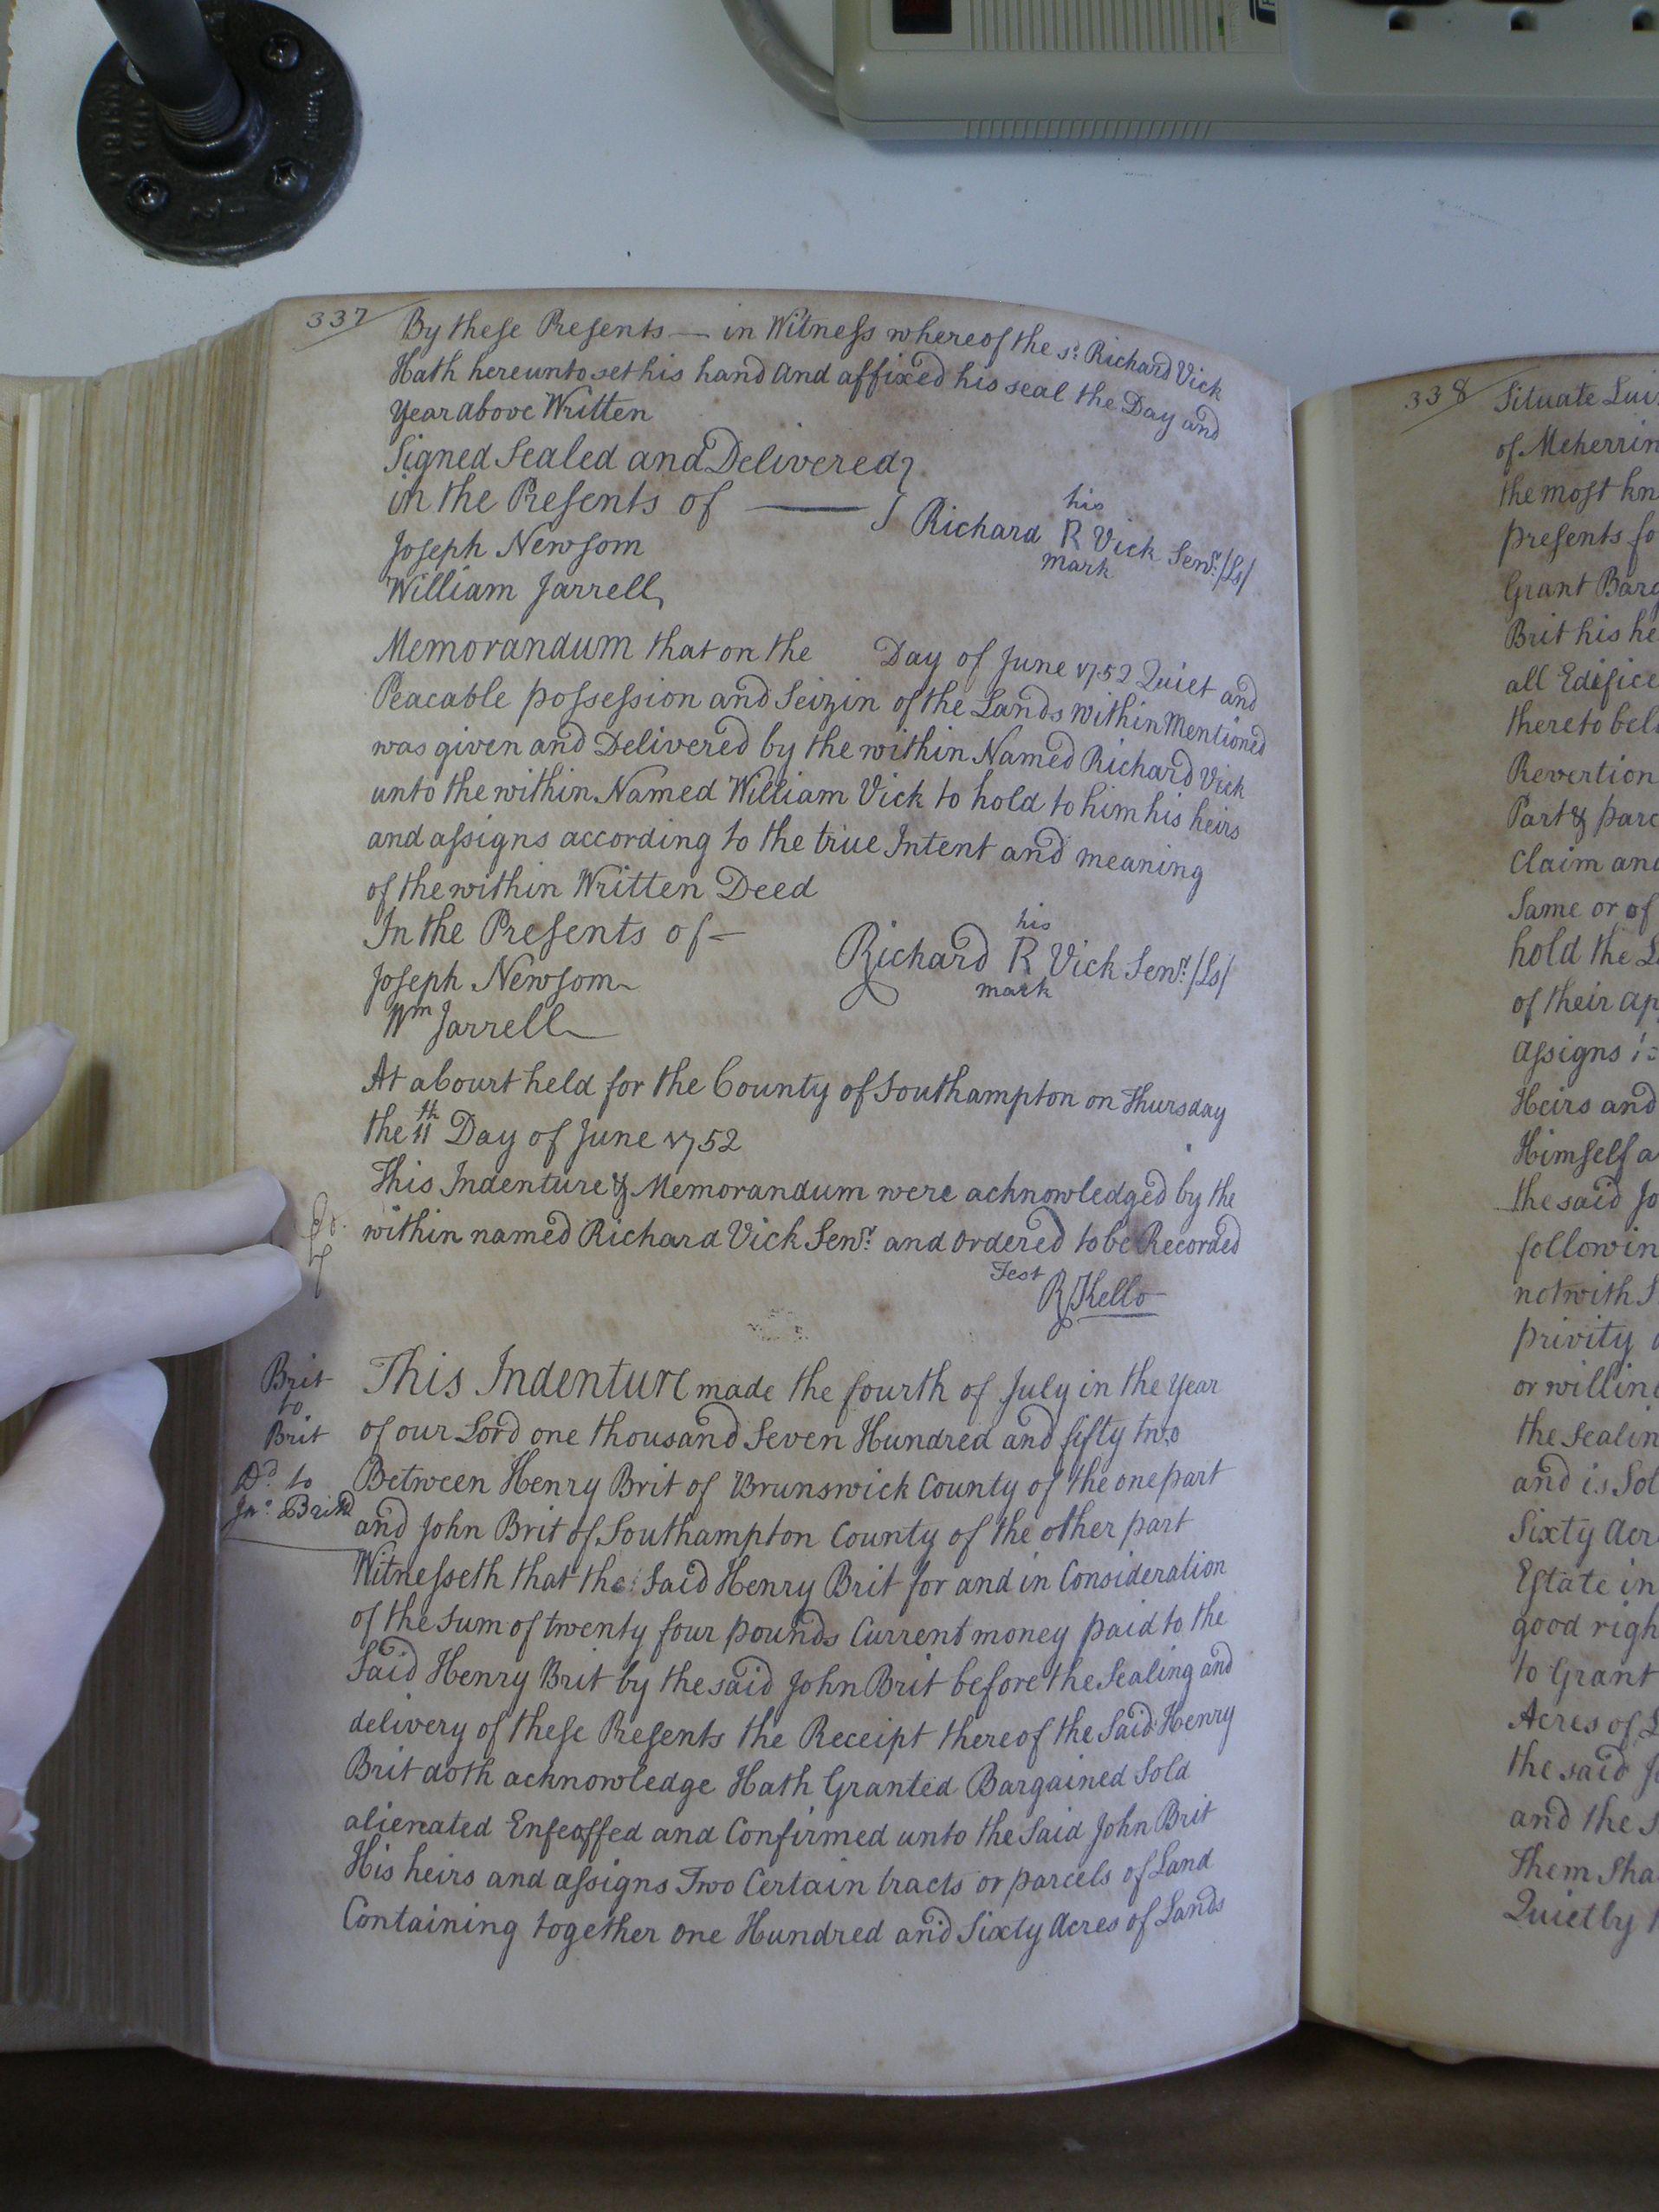 337
By these Presents — in Witness whereof the sd. Richard Vick
Hath hereunto set his hand and affixed his seal the Day and
Year above Written
Signed Sealed and Delivered
in the Presents of —
his
Richard R Vick Senr. /Ls/
mark
Joseph Newsom
William Jarrell
Memorandum that on the Day of June 1752 Quiet and
Peacable possession and Seizin of the Lands within Mentioned
was given and Delivered by the within Named Richard Vick
unto the within Named William Vick to hold to him his heirs
and assigns according to the true Intent and meaning
of the within Written Deed
In the Presents of —
his
Richard R Vick Senr. /Ls/
mark
Joseph Newsom
Wm Jarrell
At a Court held for the County of Southampton on Thursday
the 11th Day of June 1752
This Indenture & Memorandum were acknowledged by the
within named Richard Vick Senr. and Ordered to be Recorded
Test
R Kello
Brit
to
Brit
Dd. to
Jno. Britt
This Indenture made the fourth of July in the Year
of our Lord one thousand Seven Hundred and fifty two
Between Henry Brit of Brunswick County of the one part
and John Brit of Southampton County of the other part
Witnesseth that the Said Henry Brit for and in Consideration
of the Sum of twenty four pounds Current money paid to the
Said Henry Brit by the said John Brit before the Sealing and
delivery of these Presents the Receipt thereof the Said Henry
Brit doth acknowledge Hath Granted Bargained Sold
alienated Enfeoffed and Confirmed unto the Said John Brit
His heirs and assigns Two Certain tracts or parcels of Land
Containing together one Hundred and Sixty Acres of Lands
338
Situate
of Meherrin
the most
presents
Grant
Brit his
all
thereto
Revertion
Part &
Claim
Same or of
hold the
of their
assigns
Heirs and
Himself
the said
following
notwith
privity
or
the
and is
Sixty
Estate in
good
to Grant
Acres of
the said
and the
Them
Quietly